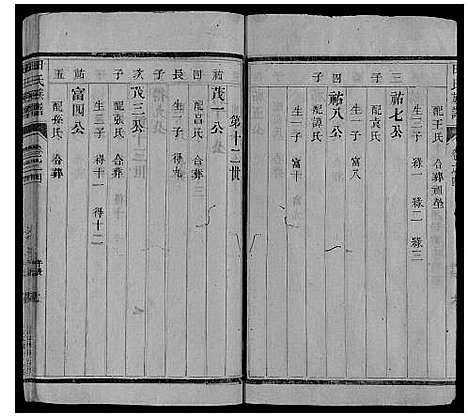 配王氏 合葬祖塋
生三子 祿一 祿二 祿三
三
祐七公
配袁氏
生一子 富八
子
四
祐八公
配譚氏
生一子 富十
子
第十二世
祐
茂一公
四
配昌氏 合葬
生二子 得三 得九
長
子
茂三公
次
配張氏 合葬
生三子 得十一 得十 得十二
子
富四公
祐
配孫氏 合葬
五